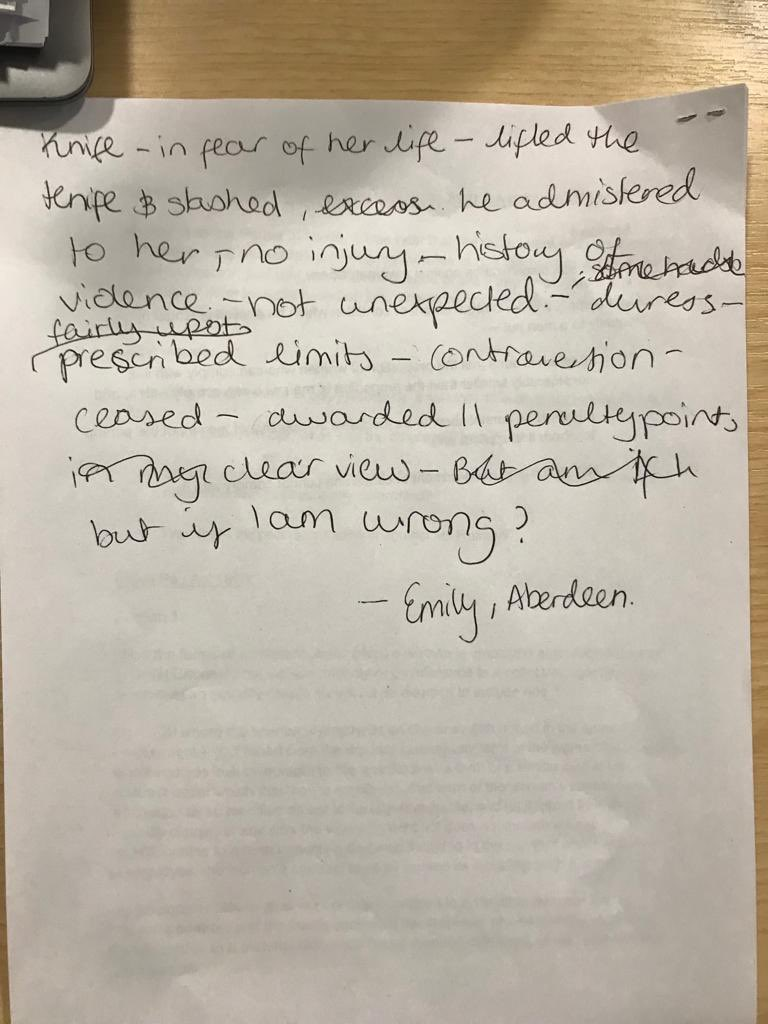 Knife - in fear of her life - lifted the
knife & slashed, excess he admistered
to her, - no injury - history of
violence. - not unexpected. - duress -
fairly upset
prescribed limits - contravention -
ceased - awarded 11 penalty points
clear view - But am
but if I am wrong?
- Emily, Aberdeen.